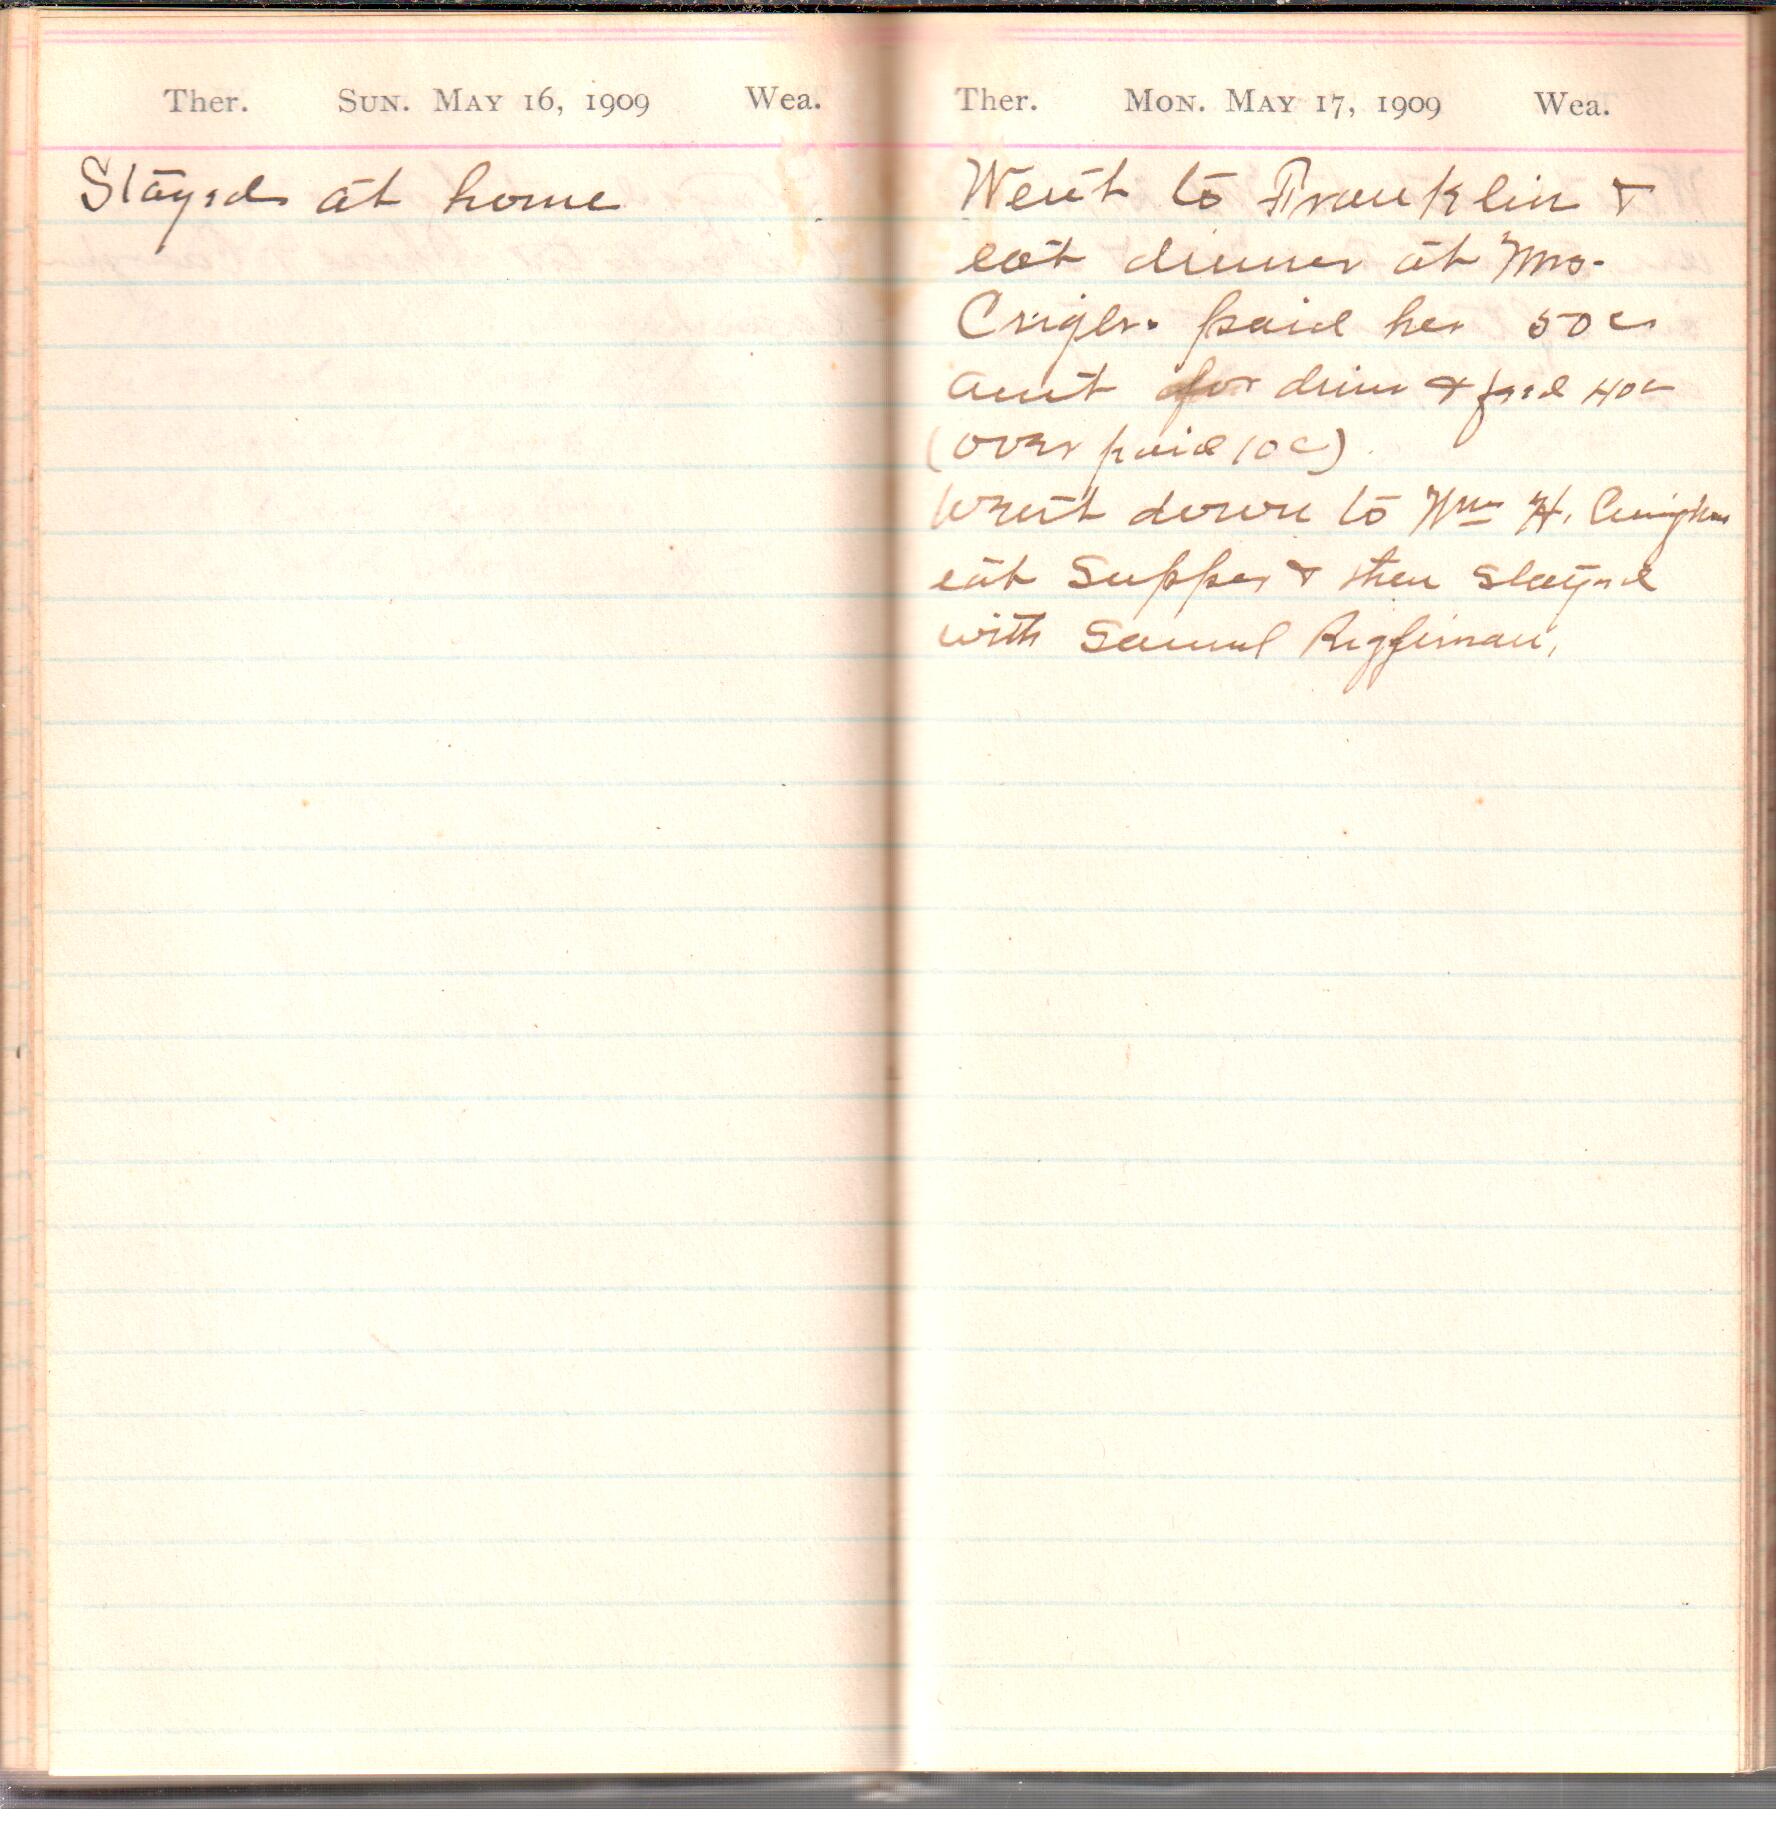 Ther. Sun. May 16, 1909 Wea.
Stayed at home
Ther. Mon. May 17, 1909 Wea.
Went to Franklin &
eat dinner at Mrs.
Crigler. paid her 50c
amt for dinn & feed 40c
(over paid 10c)
went down to Wm H.
eat Supper & then Stayed
with Samuel Riggleman,